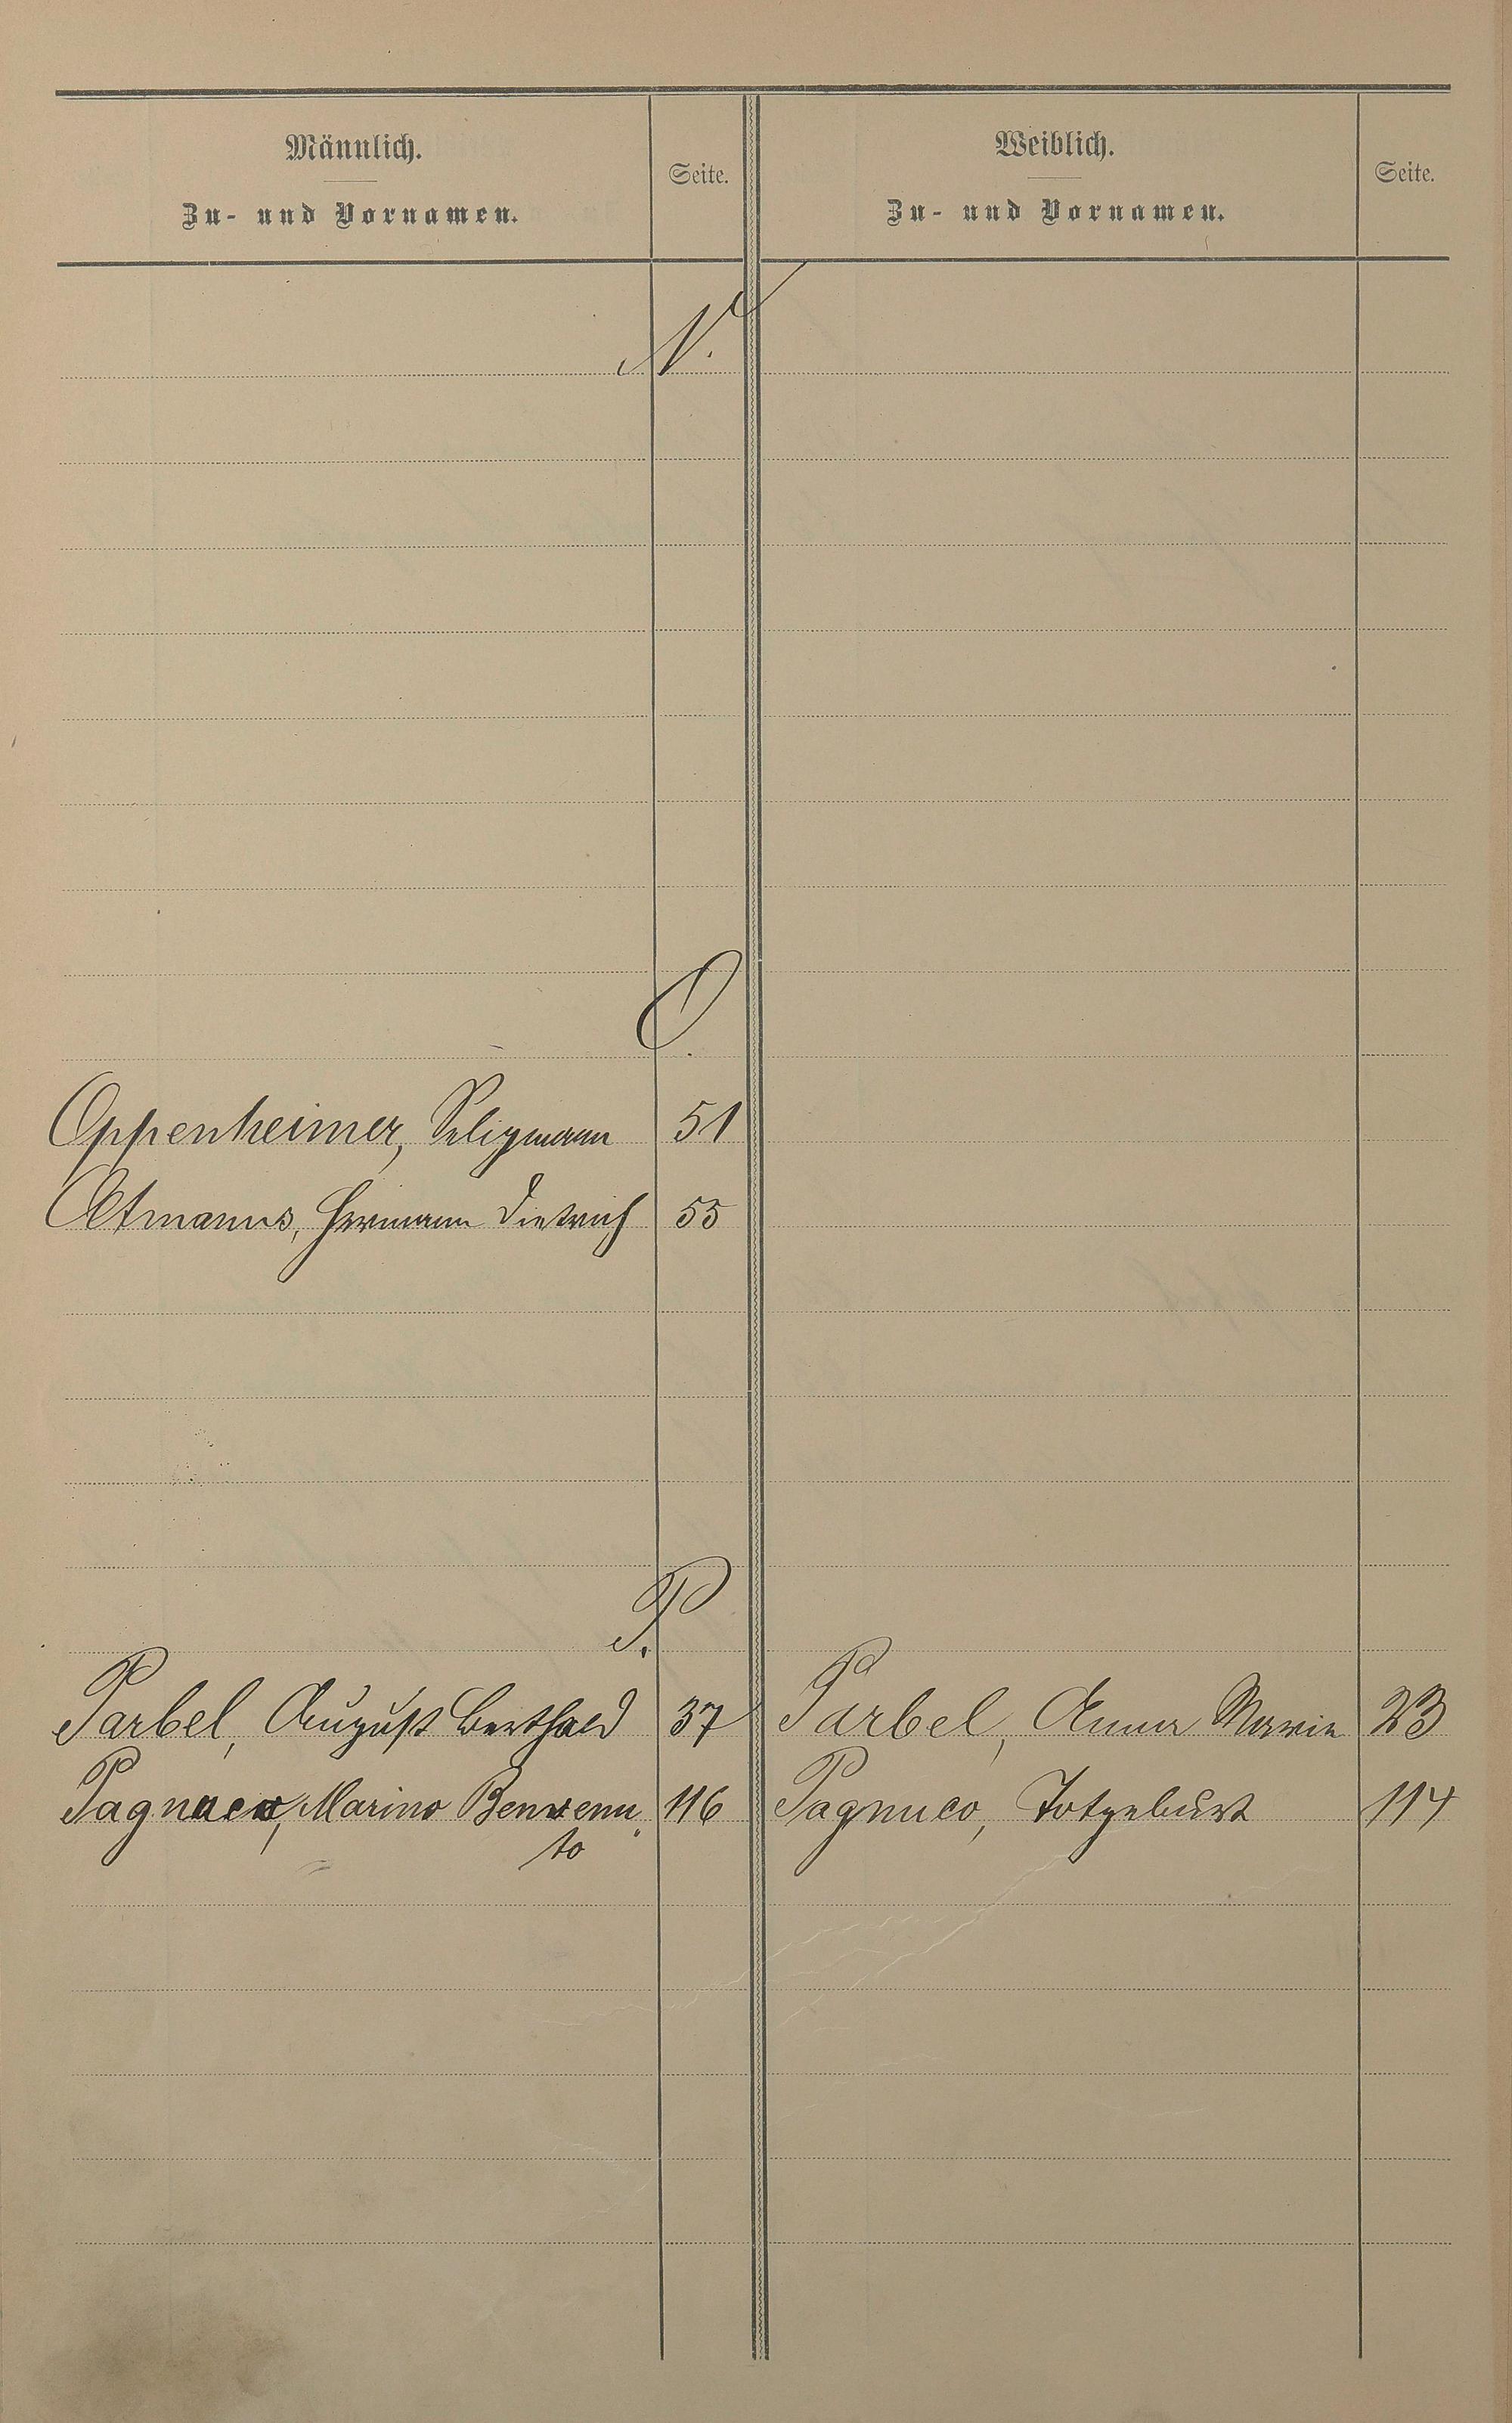 Männlich.
Zu- und Vornamen.
Seite.
Weiblich.
Zu- und Vornamen.
Seite.
N.
O.
Oppenheimer, Seligmann 51
Oltmanns, Hermann Dietrich 55
P.
Parbel, August Berthold 37 Parbel, Anna Marie 23
Pagnuco, Marino Benvenu 116 Pagnuco, Totgeburt 114
to